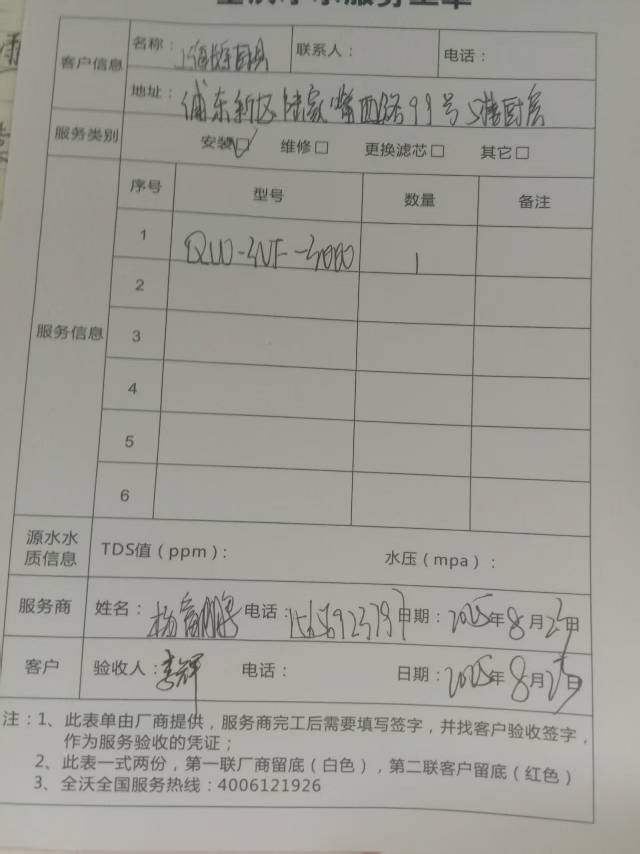 全沃净水服务工单
客户信息
名称：
联系人：
电话：
地址：浦东新区陆家嘴西路99号5楼厨房
服务类别
安装☑ 维修□ 更换滤芯□ 其它□
服务信息
序号 型号 数量 备注
1 1
2
3
4
5
6
源水水质信息
TDS值（ppm）： 水压（mpa）：
服务商 姓名：杨富鹏 电话： 日期：2025年8月25日
客户 验收人：李辉 电话： 日期：2025年8月25日
注：1、此表单由厂商提供，服务商完工后需要填写签字，并找客户验收签字，
作为服务验收的凭证；
2、此表一式两份，第一联厂商留底（白色），第二联客户留底（红色）
3、全沃全国服务热线：4006121926